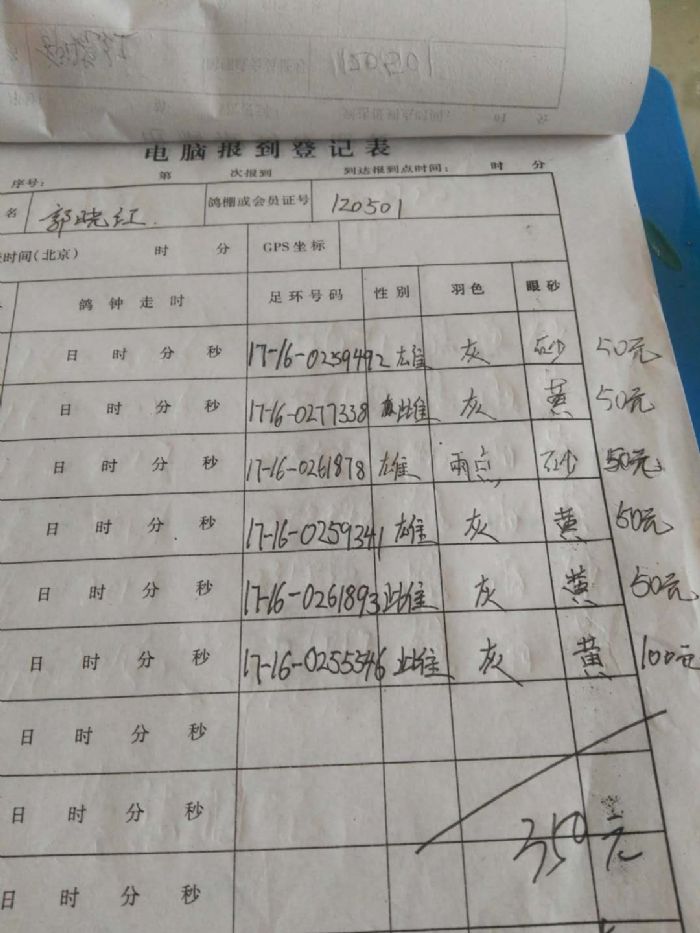 电脑报到登记表
序号: 第 次报到 到达报到点时间: 时 分
名 郭晓红 鸽棚或会员证号 120501
时间(北京) 时 分 GPS坐标
鸽钟走时 足环号码 性别 羽色 眼砂
日 时 分 秒 17-16-0259492 雄 灰 砂 50元
日 时 分 秒 17-16-0277338 雌 灰 黄 50元
日 时 分 秒 17-16-0261878 雄 雨点 砂 50元
日 时 分 秒 17-16-0259341 雄 灰 黄 50元
日 时 分 秒 17-16-0261893 雌 灰 黄 50元
日 时 分 秒 17-16-0255546 雌 灰 黄 100元
日 时 分 秒
日 时 分 秒
350元
日 时 分 秒